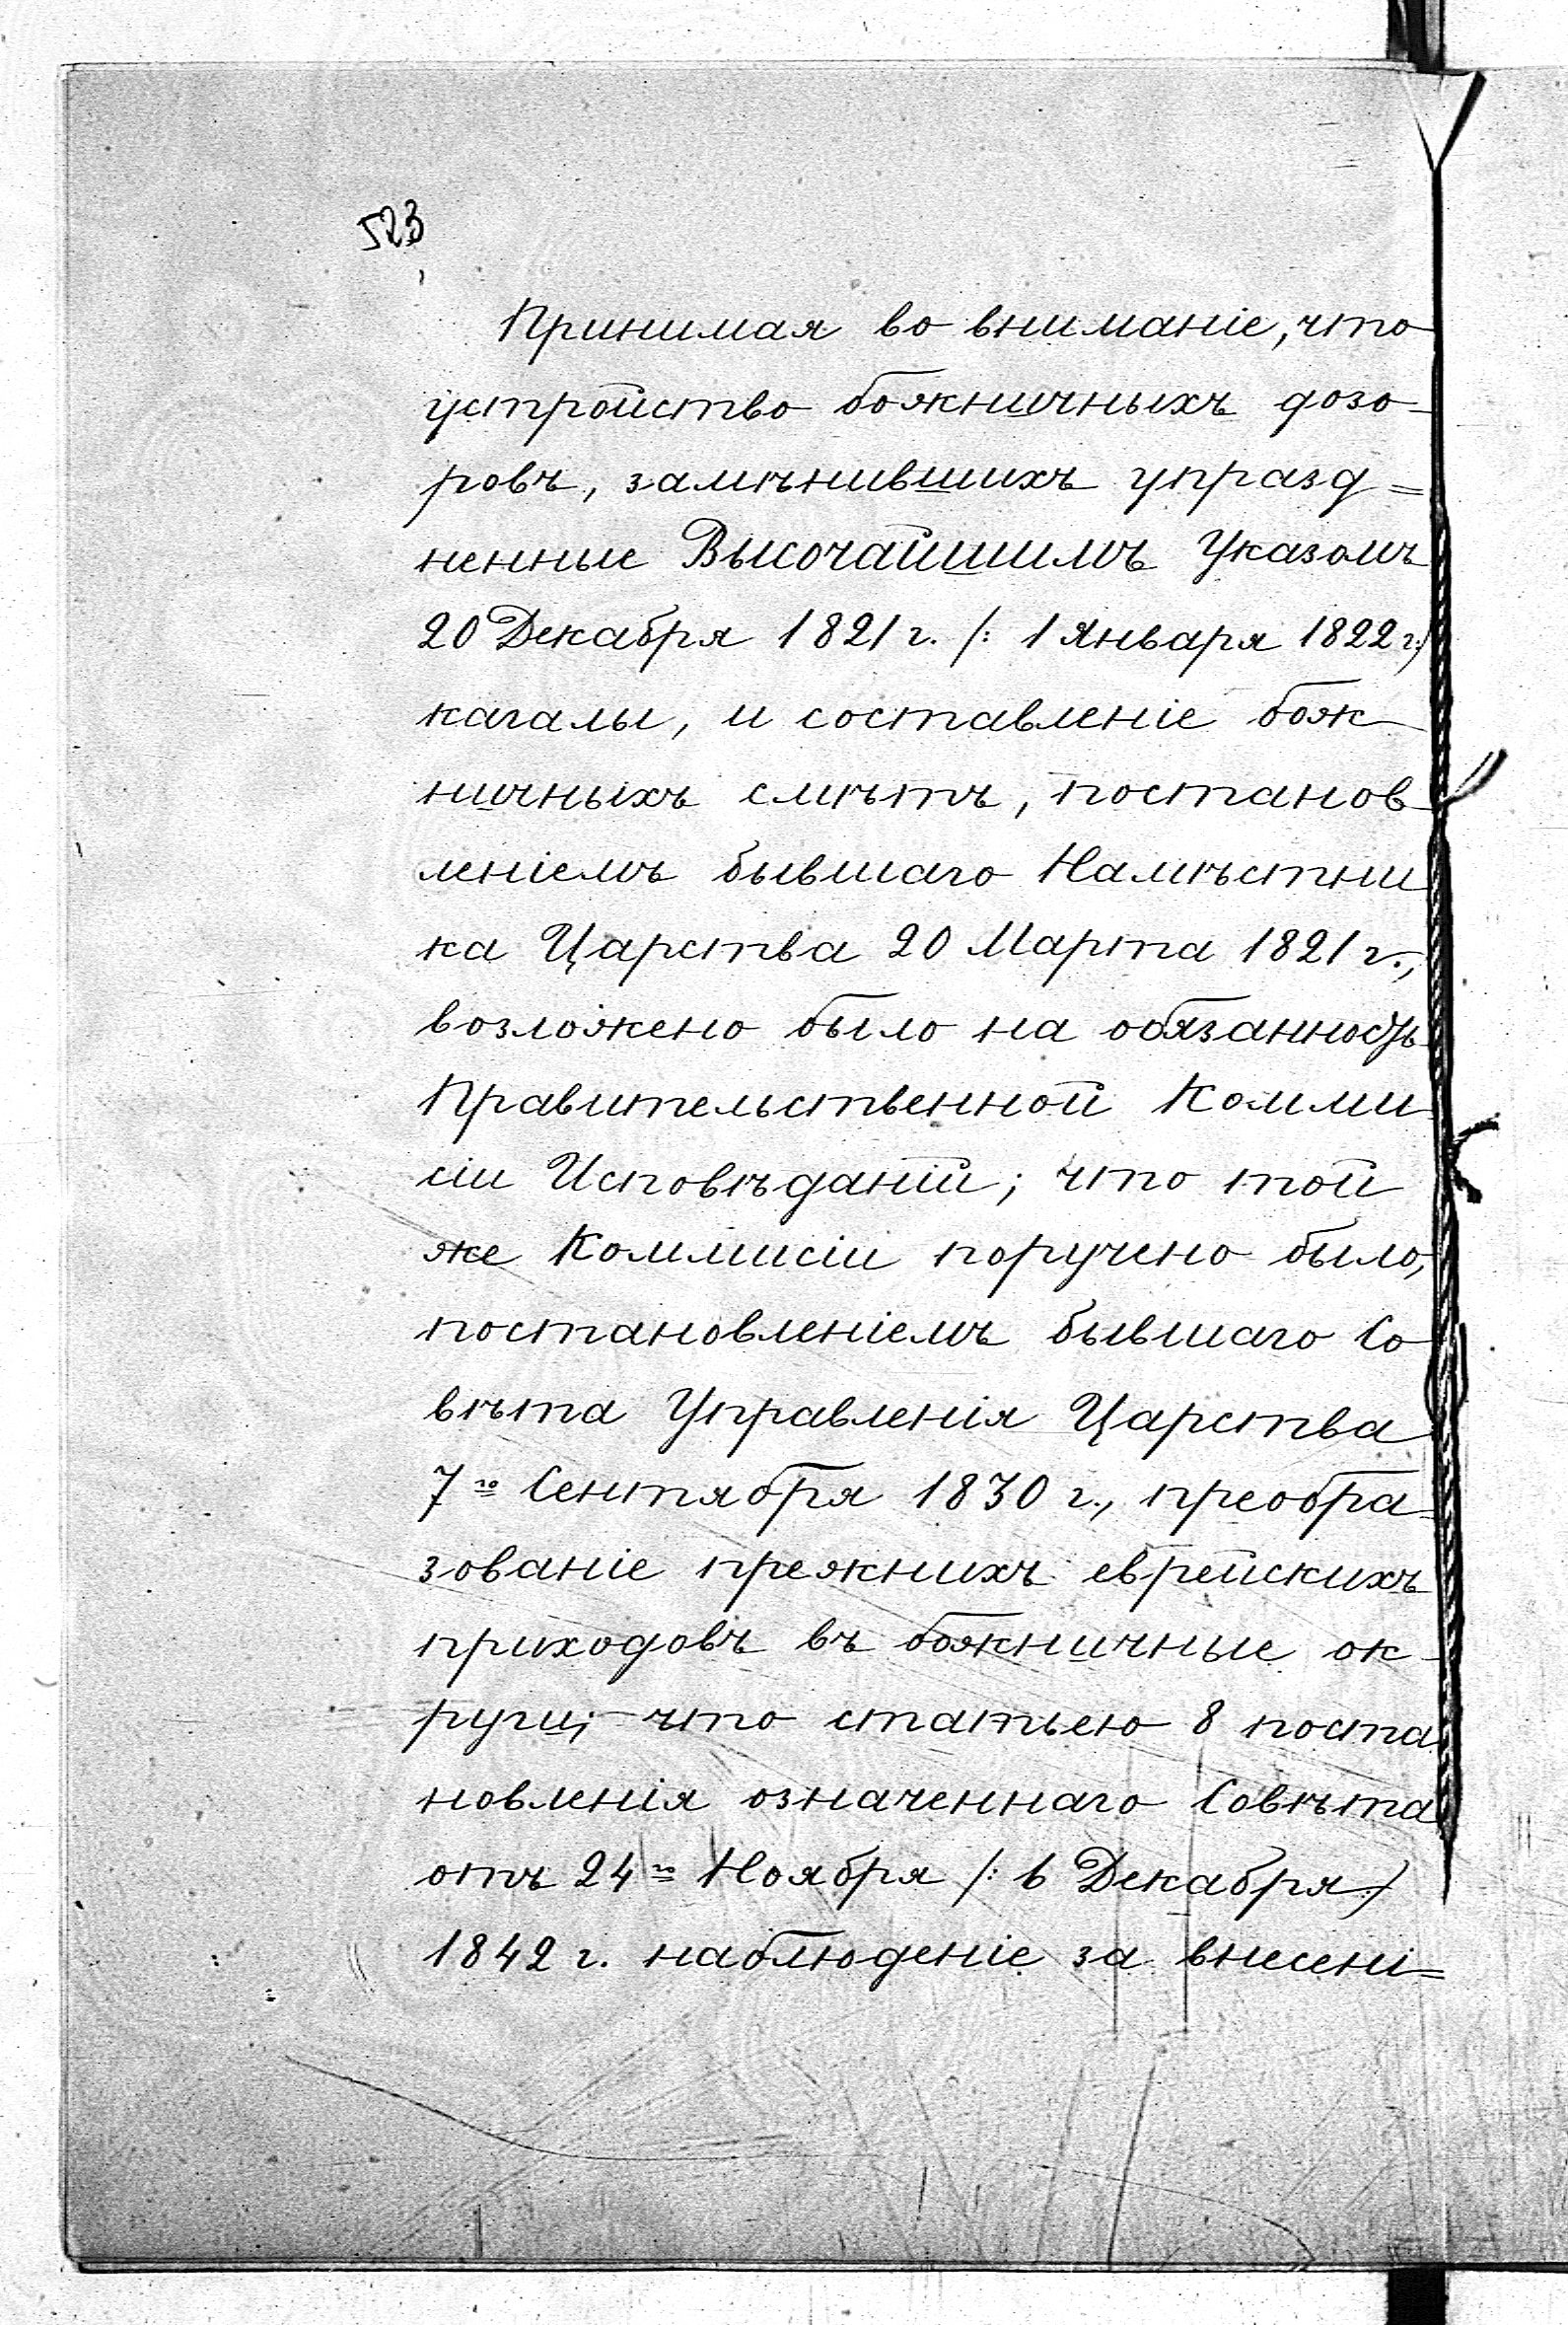 523
Принимая во вниманіе, что
устройство божничныхъ дозо-
ровъ, замѣнившихъ упразд=
ненные Высочайшимъ Указомъ
20 Декабря 1821 г. /: 1 Января 1822 г:/
кагалы, и составленіе бож-
ничныхъ смѣтъ, постанов-
леніемъ бывшаго Намѣстни
ка Царства 20 Марта 1821 г.,
возложено было на обязанность
Правительственной Комми-
сіи Исповѣданій; что той
же Коммисіи поручено было,
постановленіемъ бывшаго Со-
вѣта Управленія Царства
7го Сентября 1830 г., преобра-
зованіе прежнихъ еврейскихъ
приходовъ въ божничные ок-
руги; что статьею 8 поста
новленія означеннаго Совѣта
отъ 24го Ноября /: 6 Декабря:/
1842 г. наблюденіе за внесені=